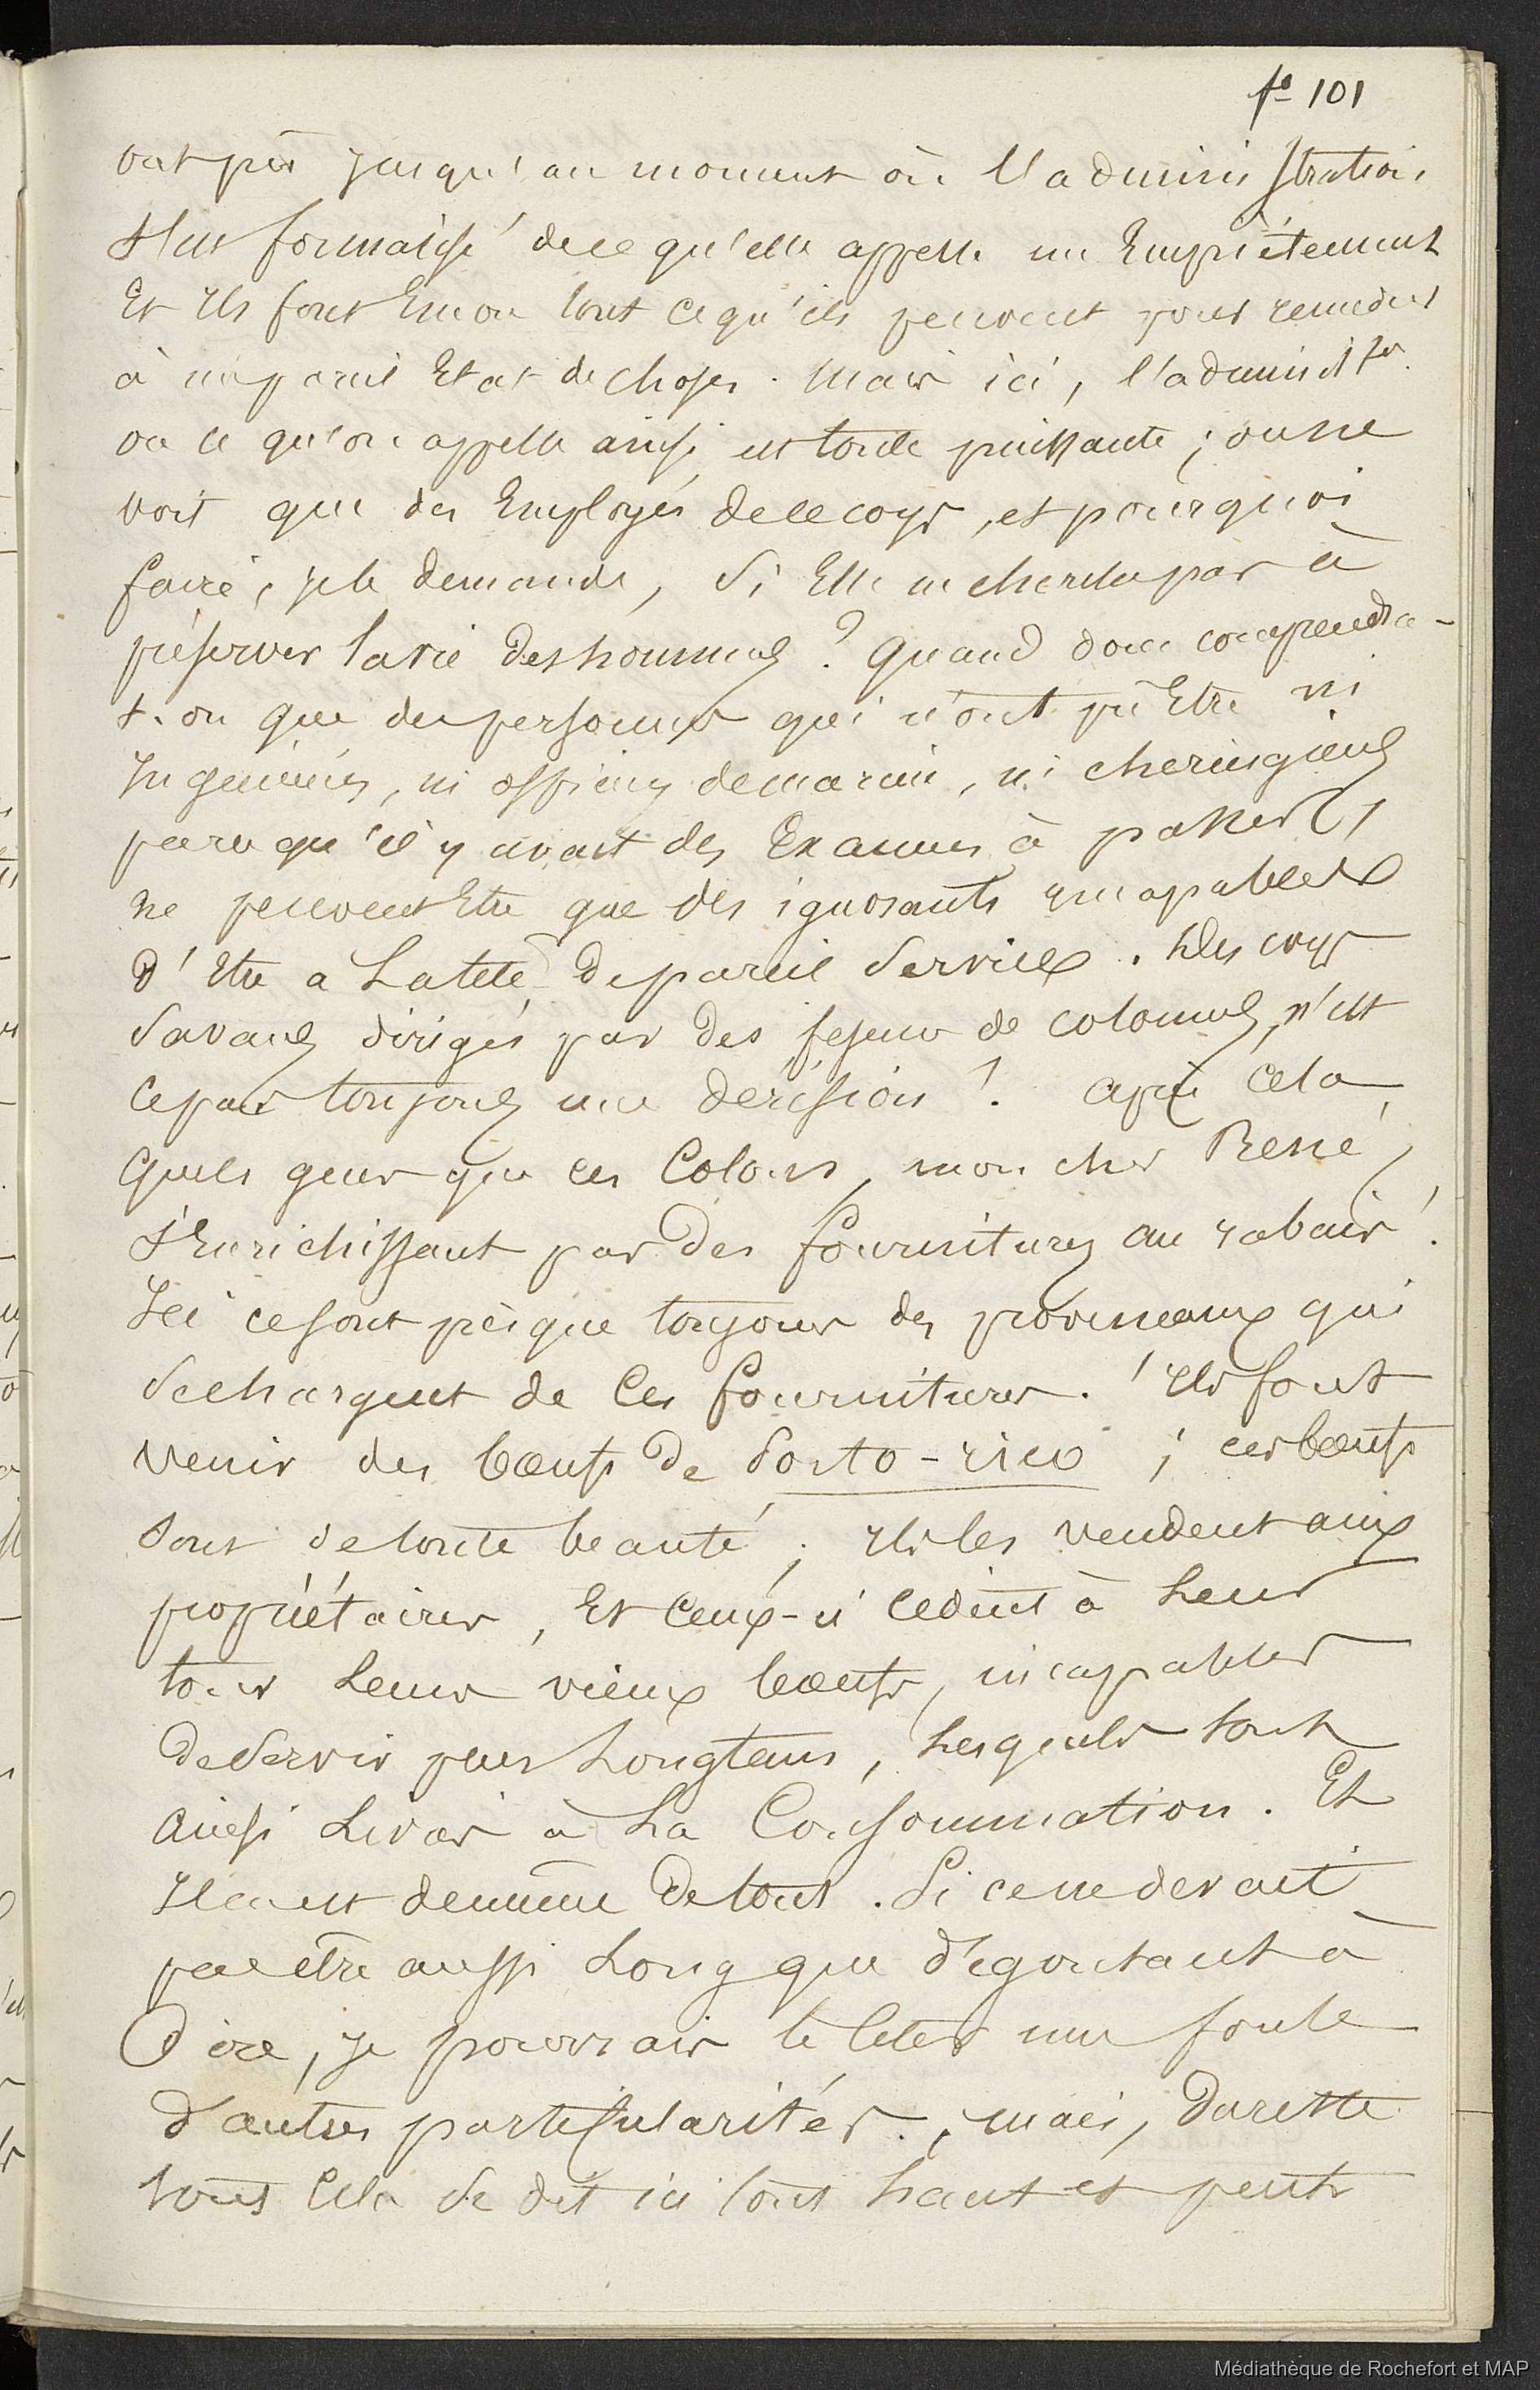 fo 101
ont pu jusqu'au moment où l'administration
s'est formalisé de ce qu'elle appelle un Empiétement
Et Ils font Encore tout ce qu'ils peuvent pour remedier
à un pareil Etat de choses. Mais ici, l'administron
ou ce qu'on appelle ainsi est toute puissante ; on ne
voit que des Employés de ce corps, et pourquoi
faire, je le demande, si Elle ne cherche pas à
préserver la vie des hommes ? Quand donc comprendra-
t-on que des personnes qui n'ont pu Etre ni
Ingénieurs, ni officiers de marine, ni chirurgiens
parce qu'il y avait des Examens à passer,
ne peuvent Etre que des ignorants incapables
d'Etre a La tête de pareil Service. Des corps
Savans dirigés par des feseurs de colonnes, n'est
ce pas toujours une dérision ! Après cela
quels gens que ces Colons, mon cher René,
s'Enrichissant par des fournitures au rabais !
Ici ce sont presque toujours des provenceaux qui
se chargent de Ces fournitures. Ils font
venir des boeufs de Porto-rico ; ces boeufs
sont de toute beauté ; Ils les vendent aux
propriétaires, Et Ceux-ci Cedent à Leur
tour Leurs vieux boeufs, incapables
de Servir plus Longtems, Lesquels sont
ainsi Livrés à La Consommation. Et
Il en est de même de tout. Si ce ne devait
pas être aussi Long que dégoutant à
Dire, je pourrais te citer une foule
d'autres particularités. ; mais, Du reste
tout Cela se dit ici tout haut et peut